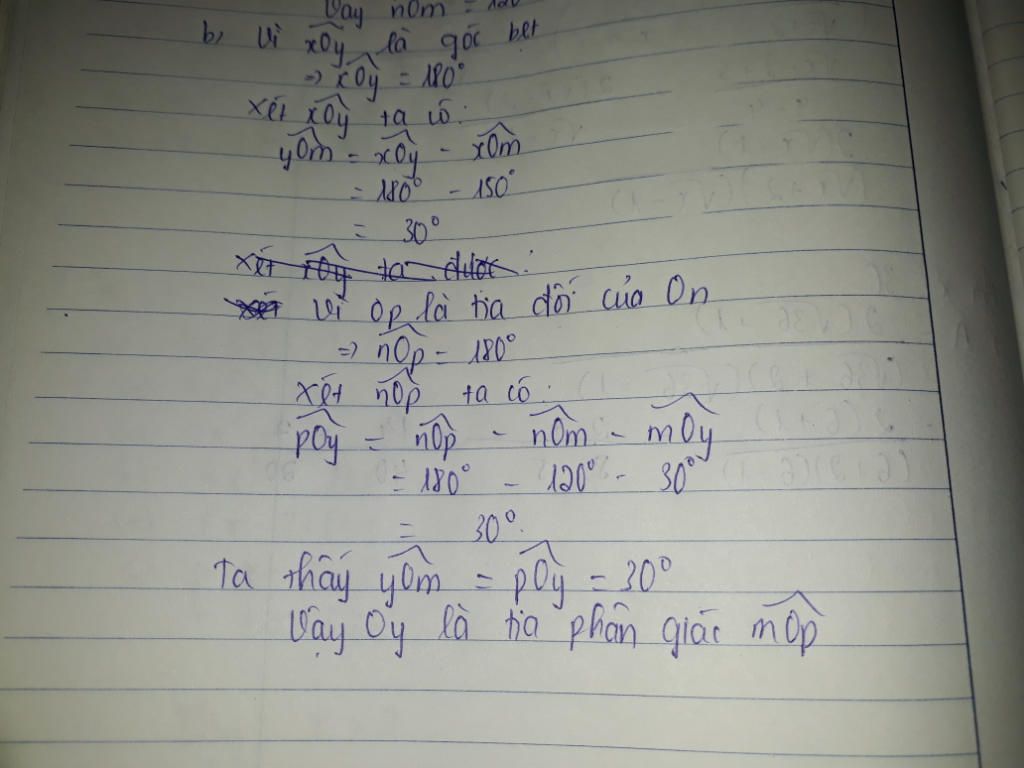 Vậy nOm = 120
b, Vì xOy là góc bẹt
=> xOy = 180°
Xét xOy ta có:
yOm = xOy - xOm
= 180° - 150°
= 30°
xét xOy ta được:
xét Vì Op là tia đối của On
=> nOp = 180°
Xét nOp ta có:
pOy = nOp - nOm - mOy
= 180° - 120° - 30°
= 30°.
Ta thấy yOm = pOy = 30°
Vậy Oy là tia phân giác mOp